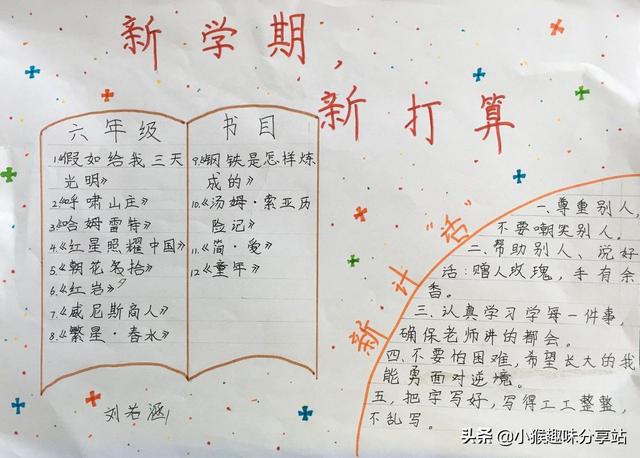 新学期，
新打算
六年级
1.《假如给我三天
光明》
2.《呼啸山庄》
3.《哈姆雷特》
4.《红星照耀中国》
5.《朝花夕拾》
6.《红岩》
7.《威尼斯商人》
8.《繁星·春水》
书目
9.《钢铁是怎样炼
成的》
10.《汤姆·索亚历
险记》
11.《简·爱》
12《童年》
刘若涵
新计"话"
一、尊重别人，
不要嘲笑别人。
二、帮助别人、说好
话：赠人玫瑰，手有余
香。
三、认真学习学每一件事，
确保老师讲的都会。
四、不要怕困难，希望长大的我
能勇面对逆境。
五、把字写好，写得工工整整，
不乱写。
头条 @小猴趣味分享站